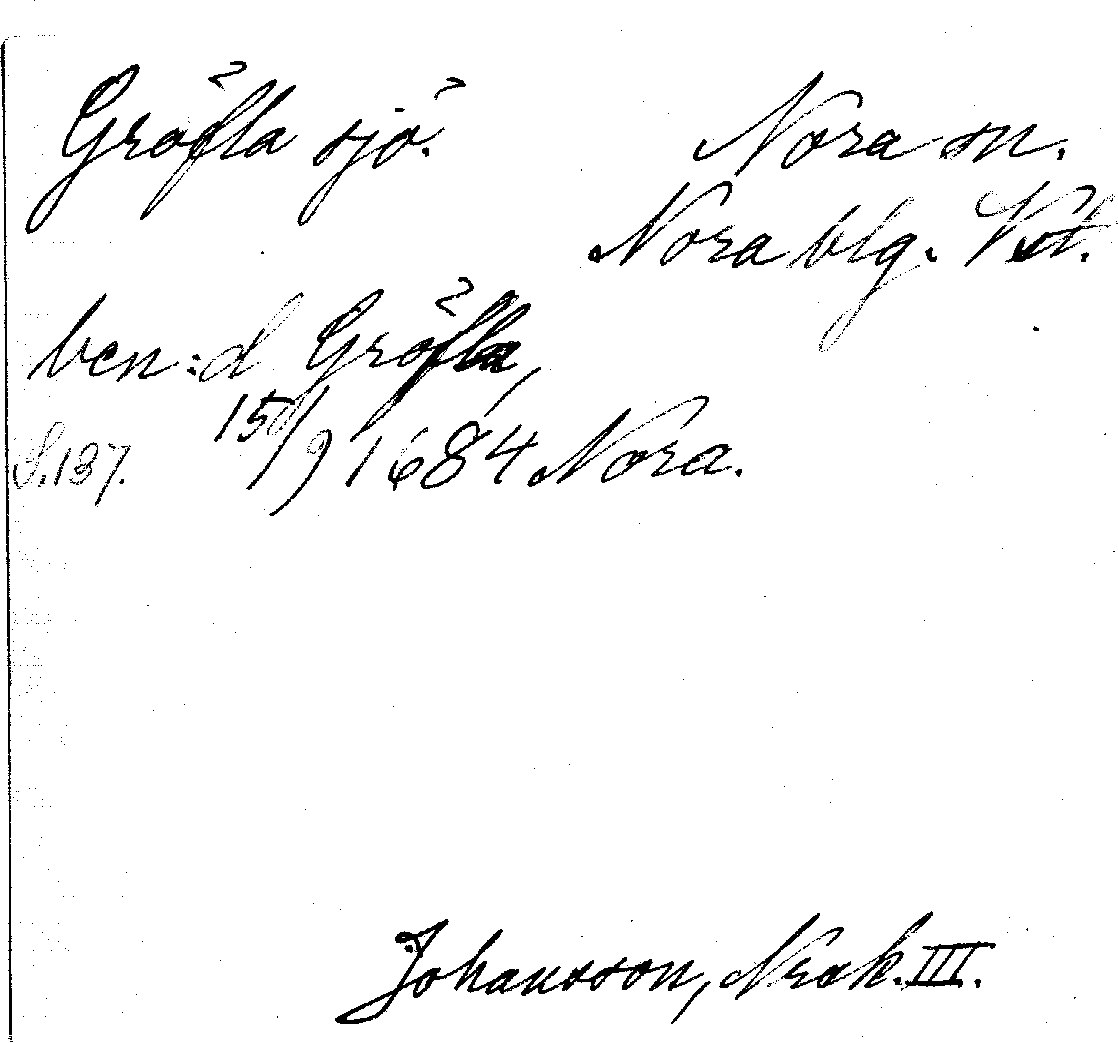 Gröfla sjö. Nora sn.
Nora blg. Vst.
ben:d Gröfla,
S. 137. 15/9 1684 Nora.
Johansson, Nrak. III.